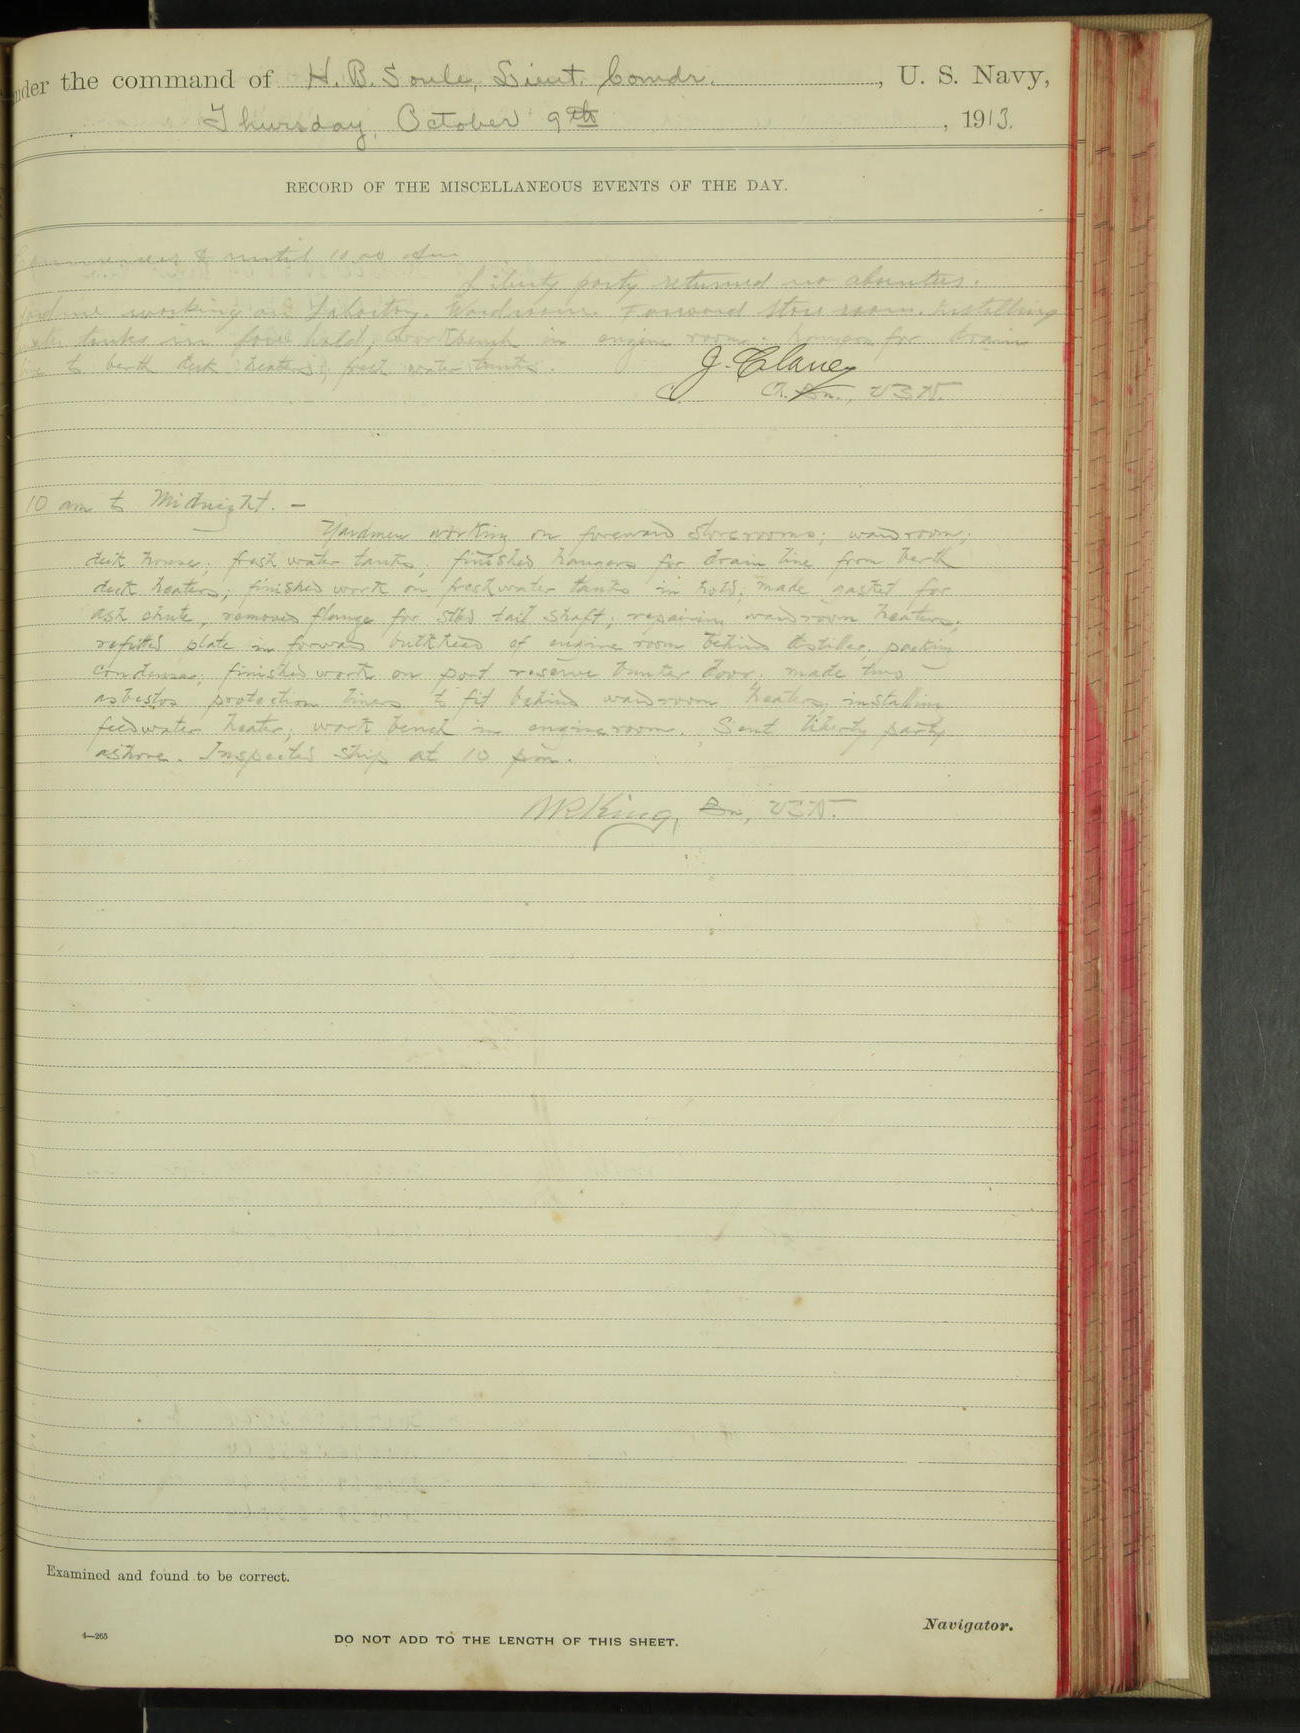 under the command of H. B. Soule, Lieut. Comdr. , U. S. Navy,
Thursday, October 9th , 1913.
RECORD OF THE MISCELLANEOUS EVENTS OF THE DAY.
until 10.00 am
Liberty party returned no absentees.
working on Wardroom. Forward Store room. Installing
tanks in fore hold, workbench in engine room. hangers for drain
to berth deck heaters, fresh water tanks.
J. Clancy
Ch. Bn., USN.
10 am to Midnight. —
Yardmen working on forward storerooms; wardroom;
deck house; fresh water tanks; finished hangers for drain line from berth
deck heaters; finished work on fresh water tanks in hold; made gasket for
ash chute, removed flange for stbd tail shaft; repairing wardroom heaters;
refitted plate in forward bulkhead of engine room behind distiller; packing
condenser; finished work on port reserve bunker door; made two
asbestos protection liners to fit behind wardroom heaters; installing
feedwater heater; work bench in engineroom. Sent liberty party
ashore. Inspected ship at 10 pm.
King, Bn, USN.
Examined and found to be correct.
Navigator.
4—265
DO NOT ADD TO THE LENGTH OF THIS SHEET.